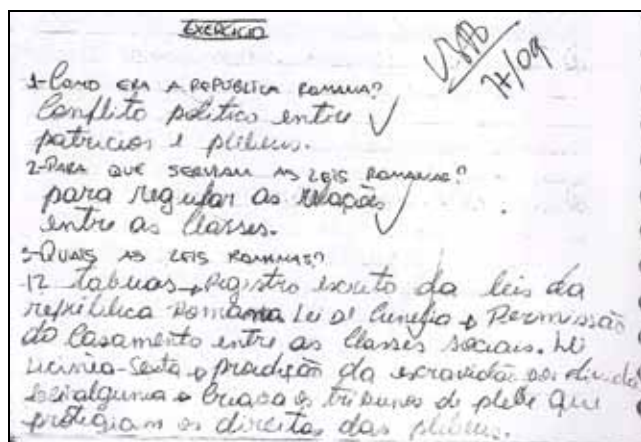 EXERCÍCIO
VISTO
17/09
1-COMO ERA A REPÚBLICA ROMANA?
Conflito político entre
patricios e plebeus.
2-PARA QUE SERVIAM AS LEIS ROMANAS?
para regular as relações
entre as classes.
3-QUAIS AS LEIS ROMANAS?
12 tabuas → registro escrito da leis da
república Romana Lei → Permissão
do Casamento entre as Classes sociais. Lei
Licinea-Sexta → da escravidão por divida
→ os tribunos de plebe que
protegiam os direitos das plebeus.